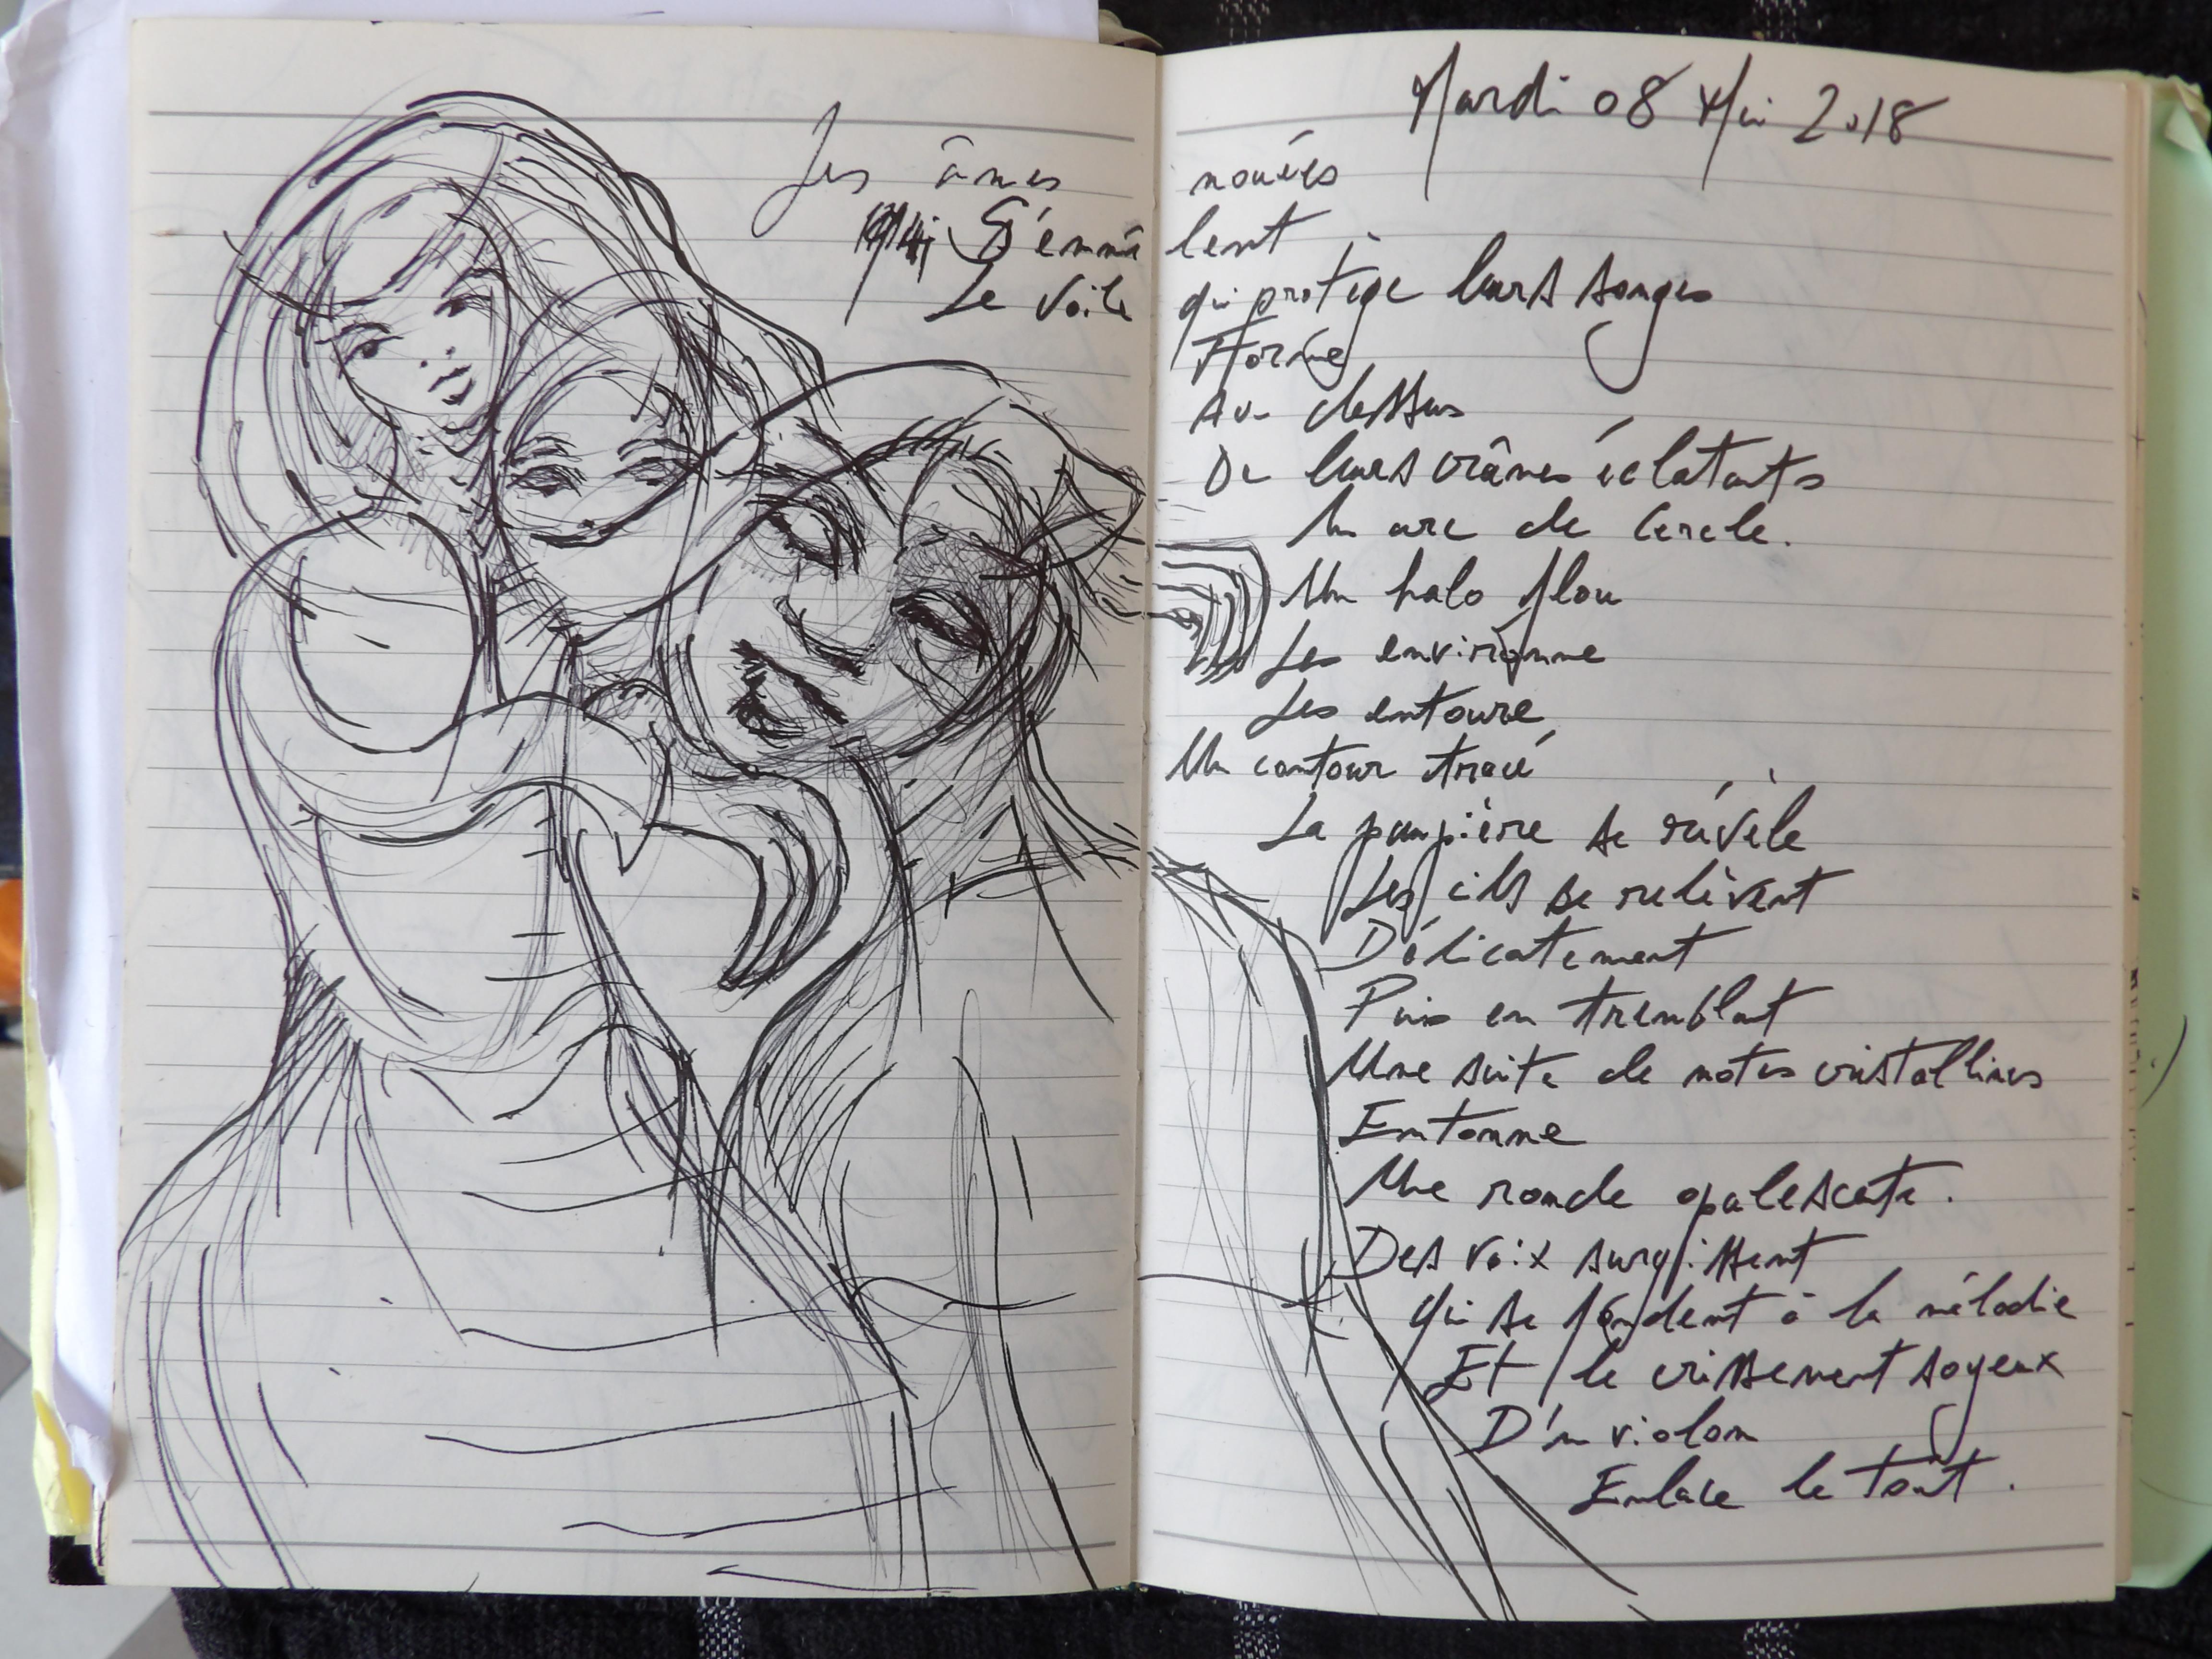 Mardi 08 Mai 2018
Les âmes nouées
S'emmêlent
Le voile qui protège leurs songes
Forme
Au dessus
De leurs crânes éclatants
Un arc de cercle.
Un halo flou
Les environne
Les entoure
Un contour tracé
La paupière se révèle
Les cils se relèvent
Délicatement
Puis en tremblant
Une suite de notes cristallines
Entonne
Une ronde opalescente.
Des voix surgissent
qui se fondent à la mélodie
Et le crissement soyeux
D'un violon
Enlace le tout.